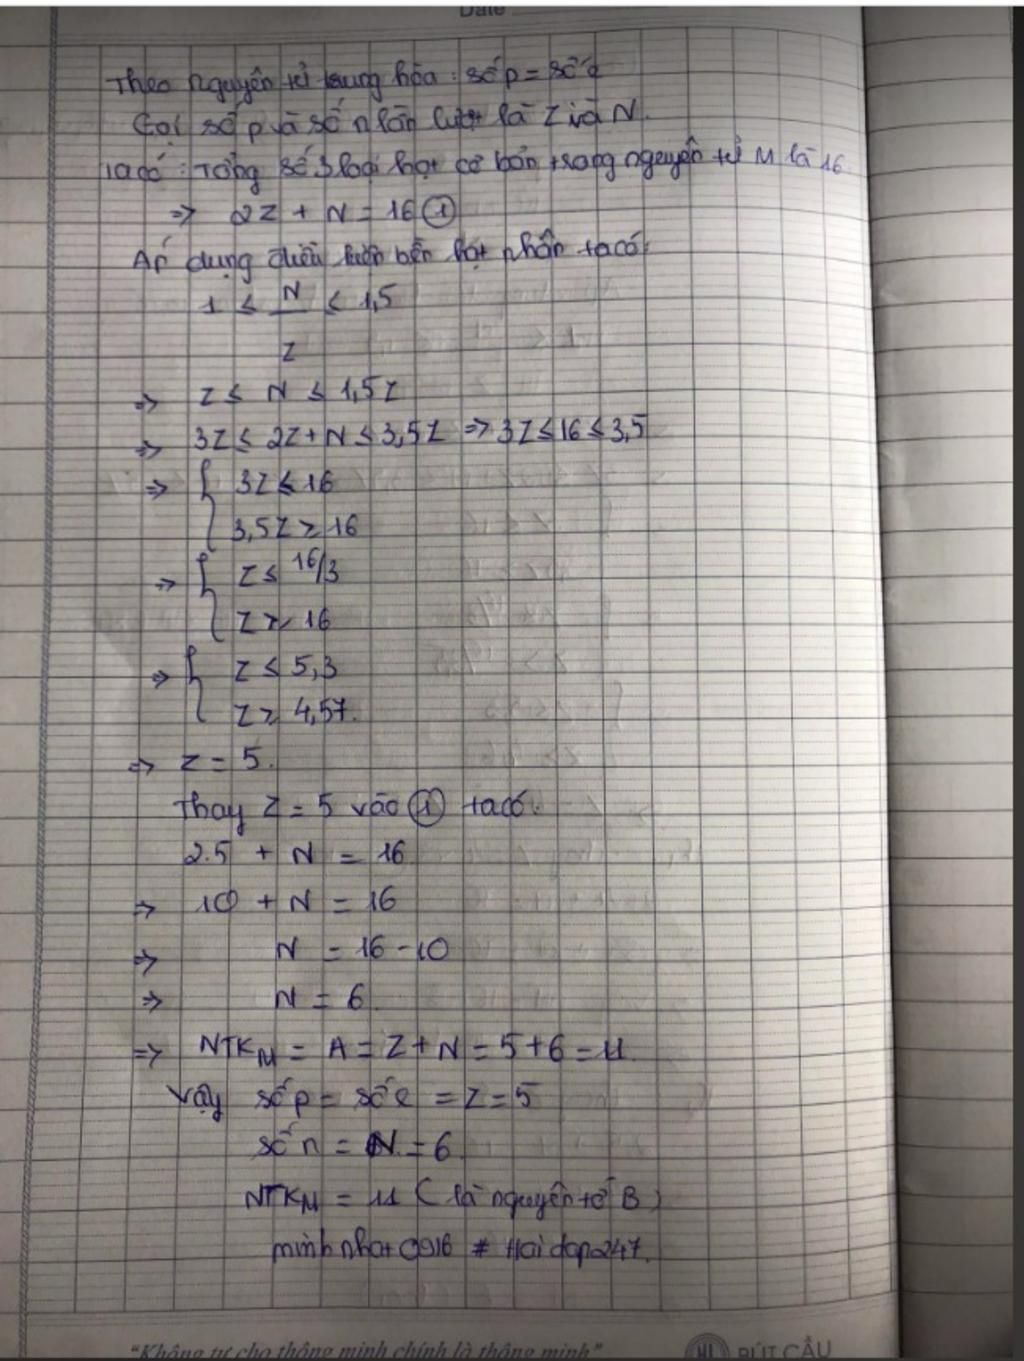 Date
Theo nguyên tử trung hòa : số p = số e
Gọi số p và số n lần lượt là Z và N.
Ta có : Tổng số 3 loại hạt cơ bản trong nguyên tử M là 16
=> 2Z + N = 16 (1)
Áp dụng điều kiện bền hạt nhân ta có:
1 ≤ N/Z ≤ 1,5
=> Z ≤ N ≤ 1,5Z
=> 3Z ≤ 2Z+N ≤ 3,5Z => 3Z ≤ 16 ≤ 3,5
=> { 3Z ≤ 16
3,5Z ≥ 16
=> { Z ≤ 16/3
Z ≥ 16
=> { Z ≤ 5,3
Z ≥ 4,57.
=> Z = 5.
Thay Z = 5 vào (1) ta có.
2.5 + N = 16
=> 10 + N = 16
=> N = 16 - 10
=> N = 6.
=> NTK_M = A = Z + N = 5 + 6 = 11.
Vậy số p = số e = Z = 5
số n = N = 6.
NTK_M = 11 ( là nguyên tố B )
minhnhat0916 # Hoidap247.
"Không tự cho thông minh chính là thông minh"
BÚT CẦU